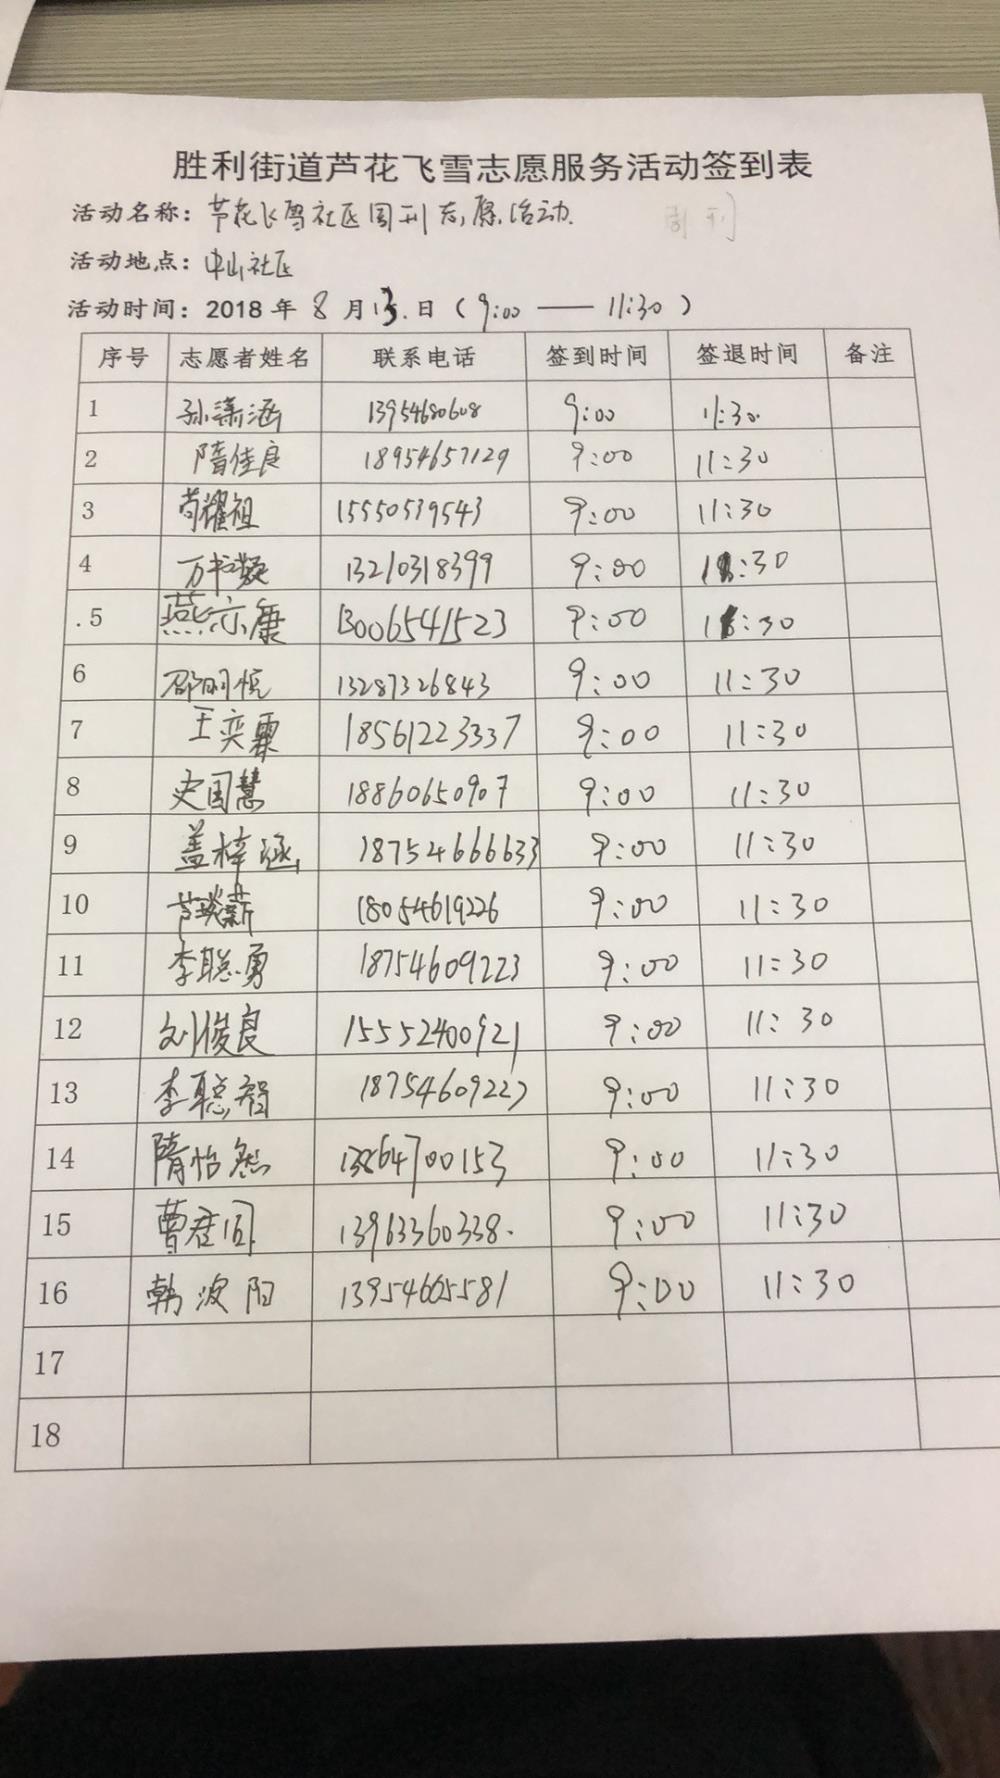 胜利街道芦花飞雪志愿服务活动签到表
活动名称：芦花飞雪社区周刊志愿活动. 周刊
活动地点：中山社区
活动时间：2018年8月13.日（9:00——11:30）
序号 志愿者姓名 联系电话 签到时间 签退时间 备注
1 孙潇涵 13954680608 9:00 11:30.
2 隋佳良 18954657129 9:00 11:30
3 苟耀祖 15550539543 9:00 11:30
4 万书凝 13210318399 9:00 11:30
.5 燕亦康 13006541523 9:00 11:30
6 邵明悦 13287326843 9:00 11:30
7 王奕霖 18561223337 9:00 11:30
8 史国慧 18860650907 9:00 11:30
9 盖梓涵 18754666633 9:00 11:30
10 芦薪 18054619226 9:00 11:30
11 李聪勇 18754609223 9:00 11:30
12 刘俊良 15552400921 9:00 11:30
13 李聪智 18754609223 9:00 11:30
14 隋怡然 13864700153 9:00 11:30
15 曹君 13963360338. 9:00 11:30
16 韩波阳 13954605581 9:00 11:30
17
18